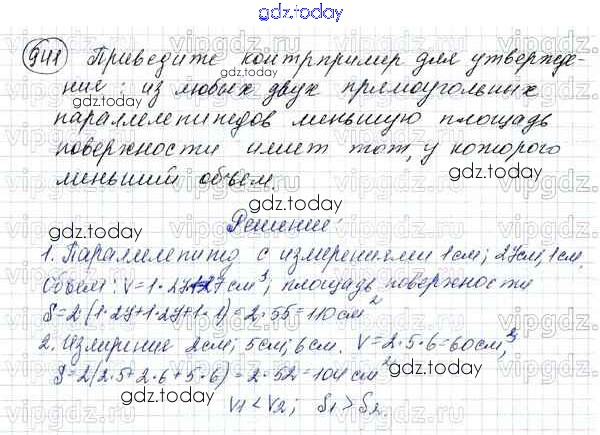 gdz.today
941 Приведите контрпример для утвержде-
ние: из любых двух прямоугольных
параллелепипедов меньшую площадь
поверхности имеет тот, у которого
меньший объем.
Решение:
1. Параллелепипед с измерениями 1см; 27см, 1см.
Объем: V=1·27·1=27см³, площадь поверхности
S=2·(1·27+1·27+1·1)=2·55=110см²
2. Измерение 2см; 5см; 6см. V=2·5·6=60см³,
S=2(2·5+2·6+5·6)=2·52=104см²
V1<V2; S1>S2.